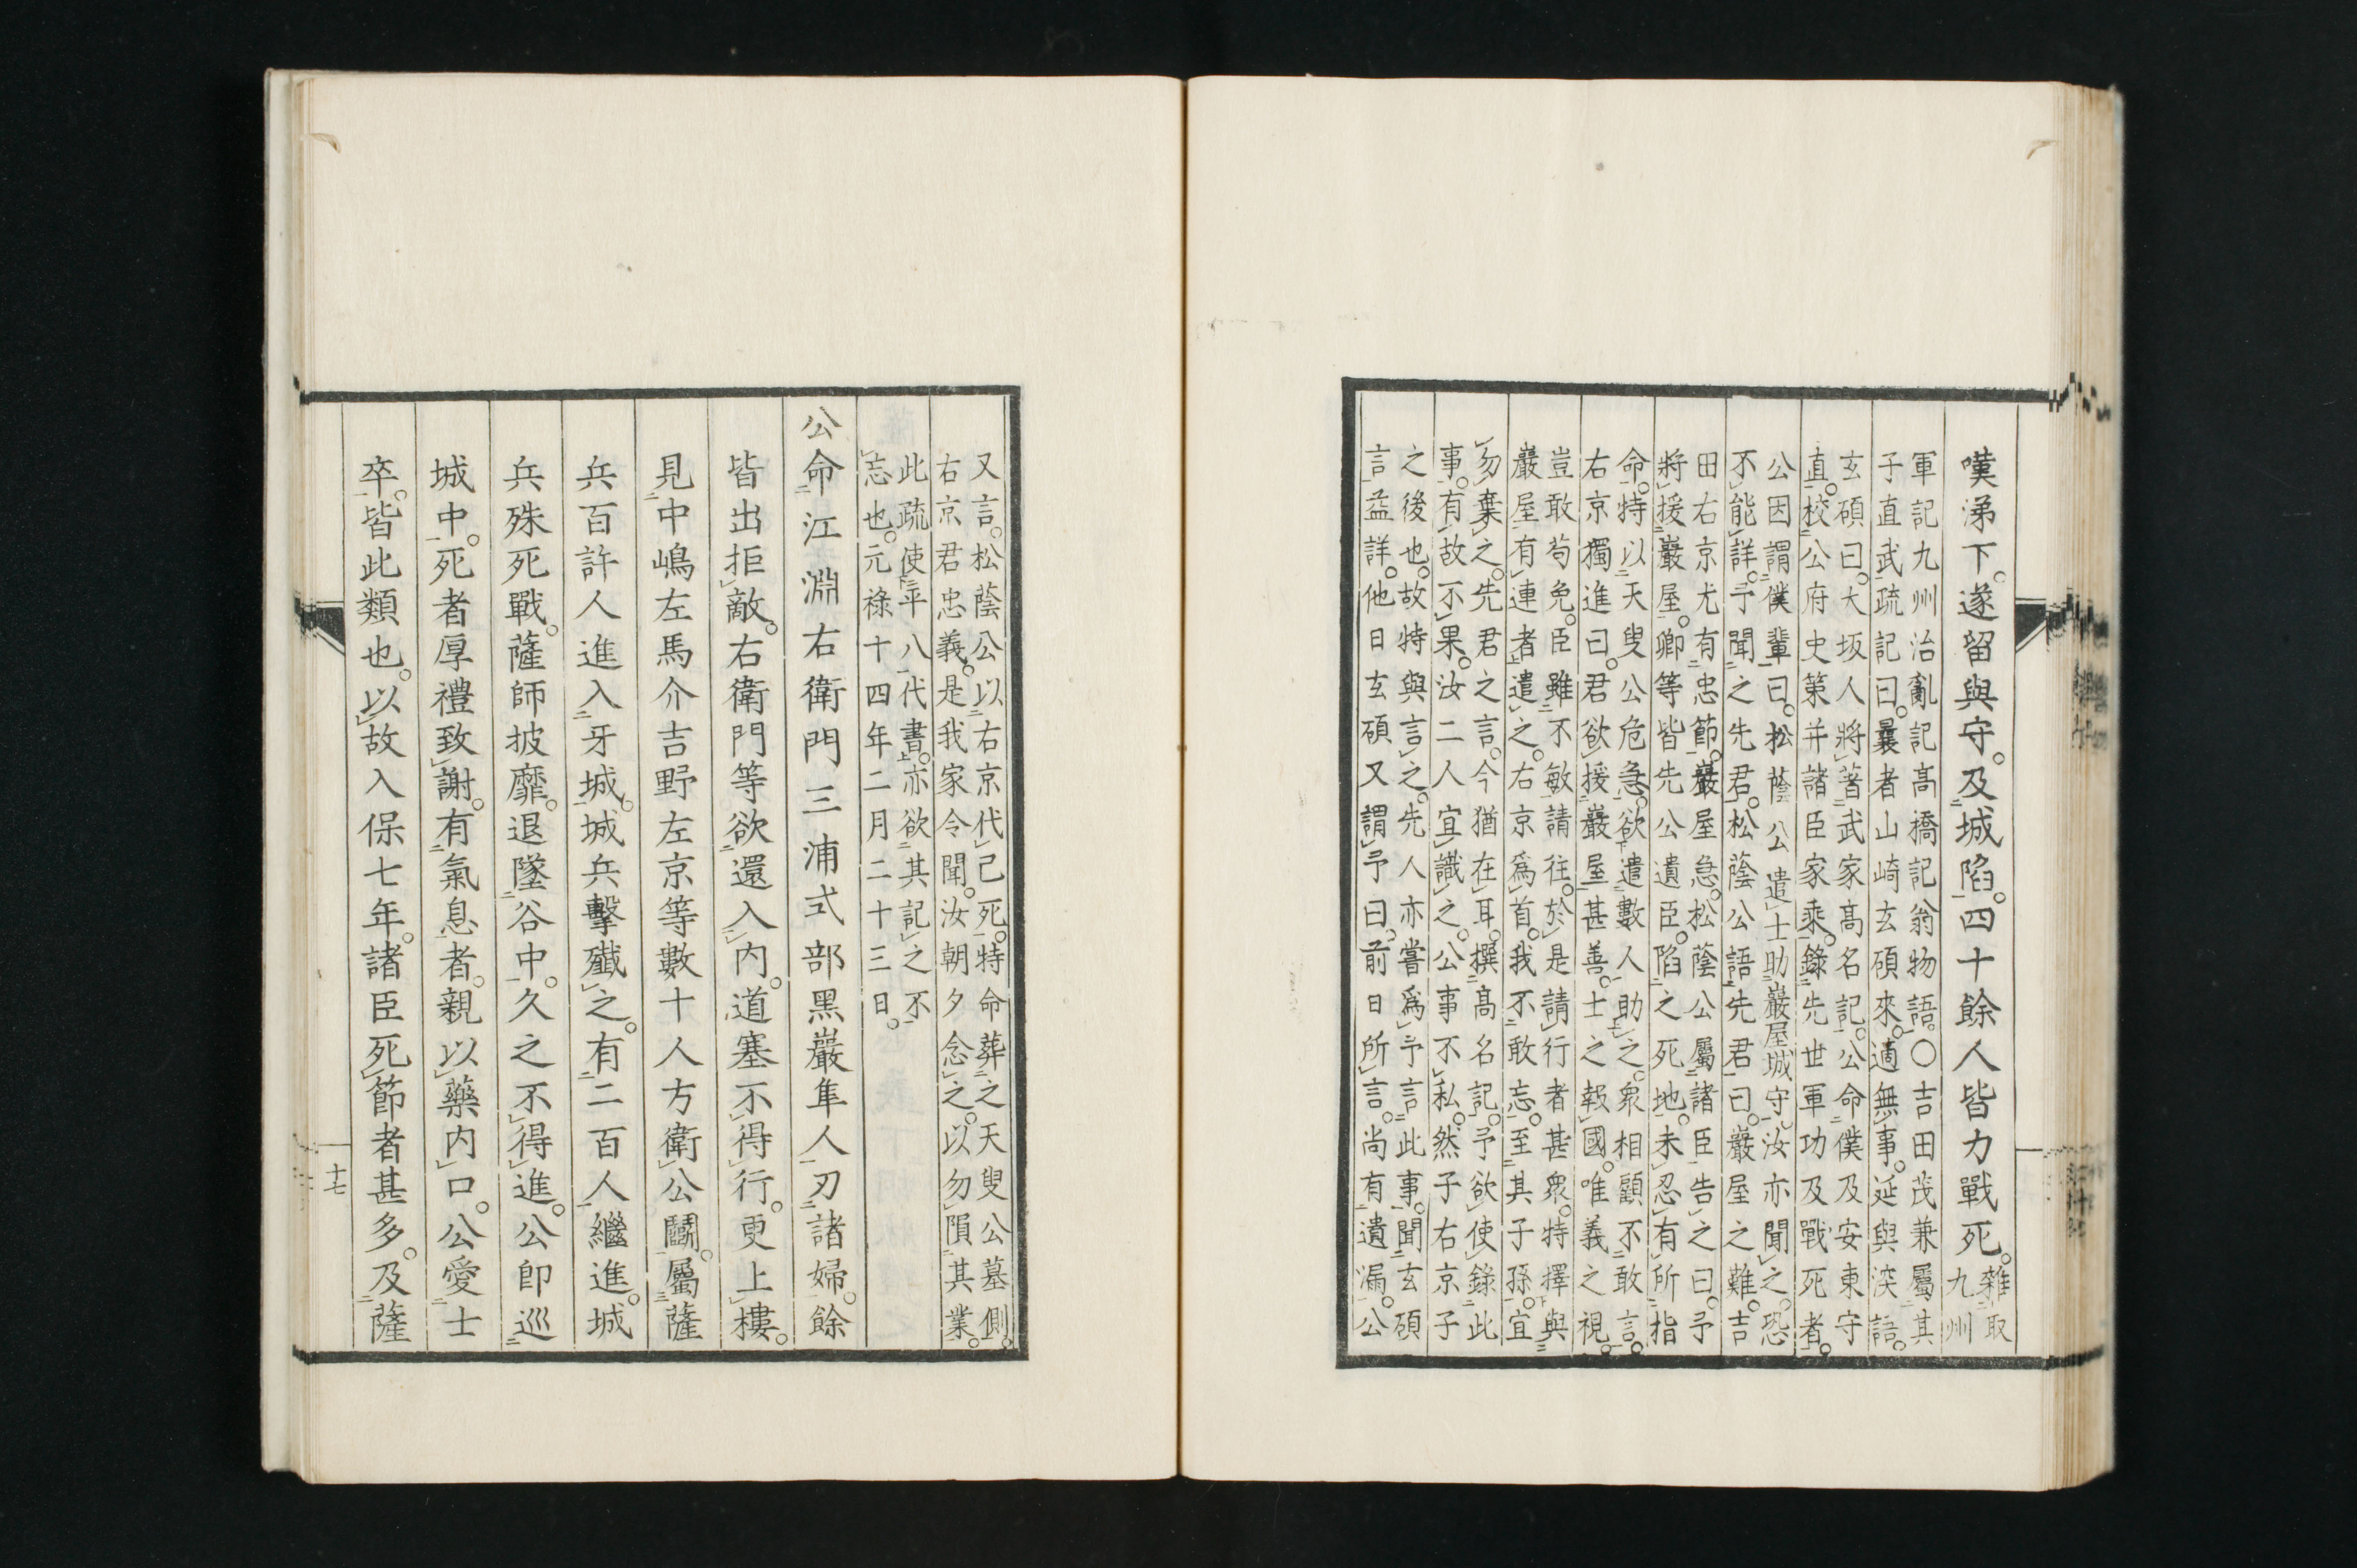 嘆涕下。遂留與守。及城陷。四十餘人皆力戰死。雜取
九州
軍記九州治亂記高橋記翁物語。〇吉田茂兼屬其
子直武疏記曰。曩者山崎玄碩來。適無事。延與談語。
玄碩曰。大坂人將著武家高名記。公命僕及安東守
直。校公府史策并諸臣家乘。錄先世軍功及戰死者。
公因謂僕輩曰。松蔭公遣士助巖屋城守。汝亦聞之。恐
不能詳。予聞之先君。松蔭公語先君曰。巖屋之難。吉
田右京尤有忠節。巖屋急。松蔭公屬諸臣告之曰。予
將援巖屋。卿等皆先公遺臣。陷之死地。未忍有所指
命。特以天叟公危急。欲遣數人助之。眾相顧不敢言。
右京獨進曰。君欲援巖屋甚善。士之報國。唯義之視。
豈敢苟免。臣雖不敏請往。於是請行者甚眾。特擇與
巖屋有連者遣之。右京為首。我不敢忘。至其子孫。宜
勿棄之。先君之言。今猶在耳。撰高名記。予欲使錄此
事。有故不果。汝二人宜識之。公事不私。然子右京子
之後也。故特與言之。先人亦嘗為予言此事。聞玄碩
言益詳。他日玄碩又謂予曰。前日所言。尚有遺漏。公
又言。松蔭公以右京代己死。特命葬之天叟公墓側。
右京君忠義。是我家令聞。汝朝夕念之。以勿隕其業。
此疏使平八代書。亦欲其記之不
忘也。元祿十四年二月二十三日。
公命江淵右衛門三浦式部黑巖隼人刃諸婦。餘
皆出拒敵。右衛門等欲還入內。道塞不得行。更上樓。
見中嶋左馬介吉野左京等數十人方衛公鬭。屬薩
兵百許人進入牙城。城兵擊殲之。有二百人繼進。城
兵殊死戰。薩師披靡。退墜谷中。久之不得進。公卽巡
城中。死者厚禮致謝。有氣息者。親以藥內口。公愛士
卒。皆此類也。以故入保七年。諸臣死節者甚多。及薩
十七